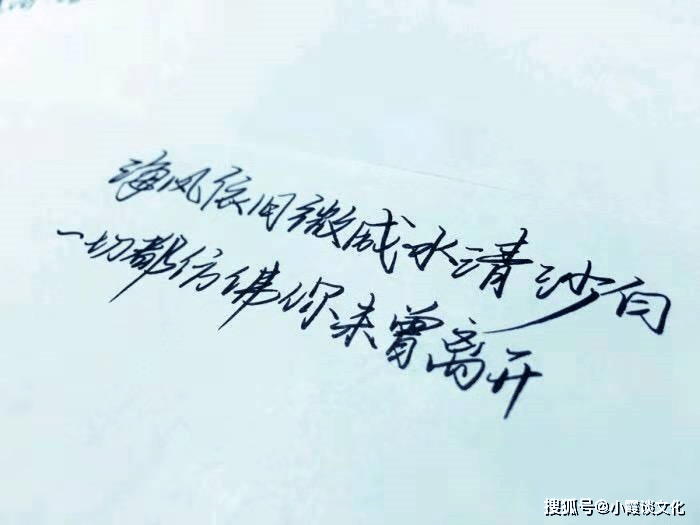 海风依旧微咸水清沙白
一切都仿佛你未曾离开
搜狐号@小霞谈文化